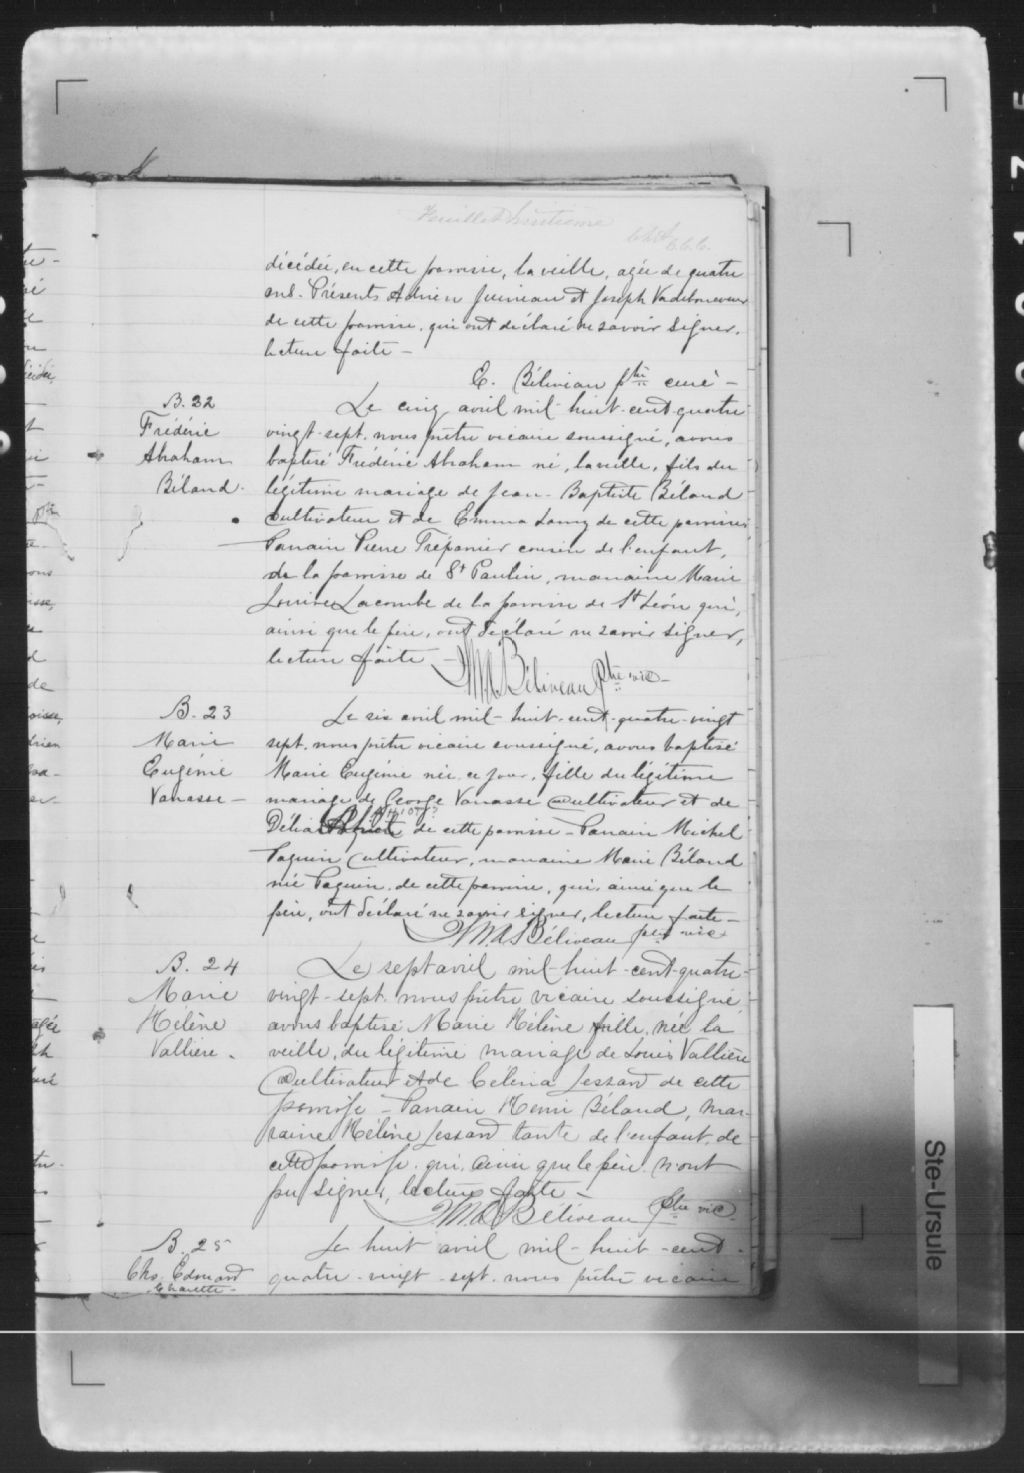 Feuillet huitième
décédée, en cette paroisse, la veille, agée de quatre
ans. Présents Adrien Juineau et Joseph Vadeboncoeur
de cette paroisse, qui ont déclaré ne savoir signer.
lecture faite —
E. Béliveau ptre curé —
B. 22
Frédéric
Abraham
Béland.
Le cinq avril mil-huit-cent-quatre
vingt-sept, nous prêtre vicaire soussigné, avons
baptisé Frédéric Abraham né, la veille, fils du
légitime mariage de Jean-Baptiste Béland
Cultivateur et de Emma Lamy de cette paroisse
Parrain Pierre Trépanier cousin de l'enfant,
de la paroisse de St Paulin, marraine Marie
Louise Lacombe de la paroisse de St Léon qui,
ainsi que le père, ont déclaré ne savoir signer,
lecture faite —
Béliveau Ptre vic —
B. 23
Marie
Eugénie
Vanasse —
Le six avril mil-huit-cent-quatre-vingt
sept, nous prêtre vicaire soussigné, avons baptisé
Marie Eugénie née, ce jour, fille du légitime
mariage de George Vanasse Cultivateur et de
Délia de cette paroisse — Parrain Michel
Paquin Cultivateur, marraine Marie Béland
née Paquin, de cette paroisse, qui, ainsi que le
père, ont déclaré ne savoir signer, lecture faite —
Béliveau ptre vic
B. 24
Marie
Hélène
Vallière.
Le sept avril mil-huit-cent-quatre-
vingt-sept, nous prêtre vicaire soussigné
avons baptisé Marie Hélène fille, née la
veille, du légitime mariage de Louis Vallière
Cultivateur et de Celina Lessard de cette
paroisse — Parrain Henri Béland, mar-
raine Hélène Lessard tante de l'enfant, de
cette paroisse, qui, ainsi que le père, n'ont
pu signer, lecture faite —
Béliveau Ptre vic
B. 25
Chs. Edouard
Charette —
Le huit avril mil-huit-cent-
quatre-vingt-sept, nous prêtre vicaire
Ste-Ursule